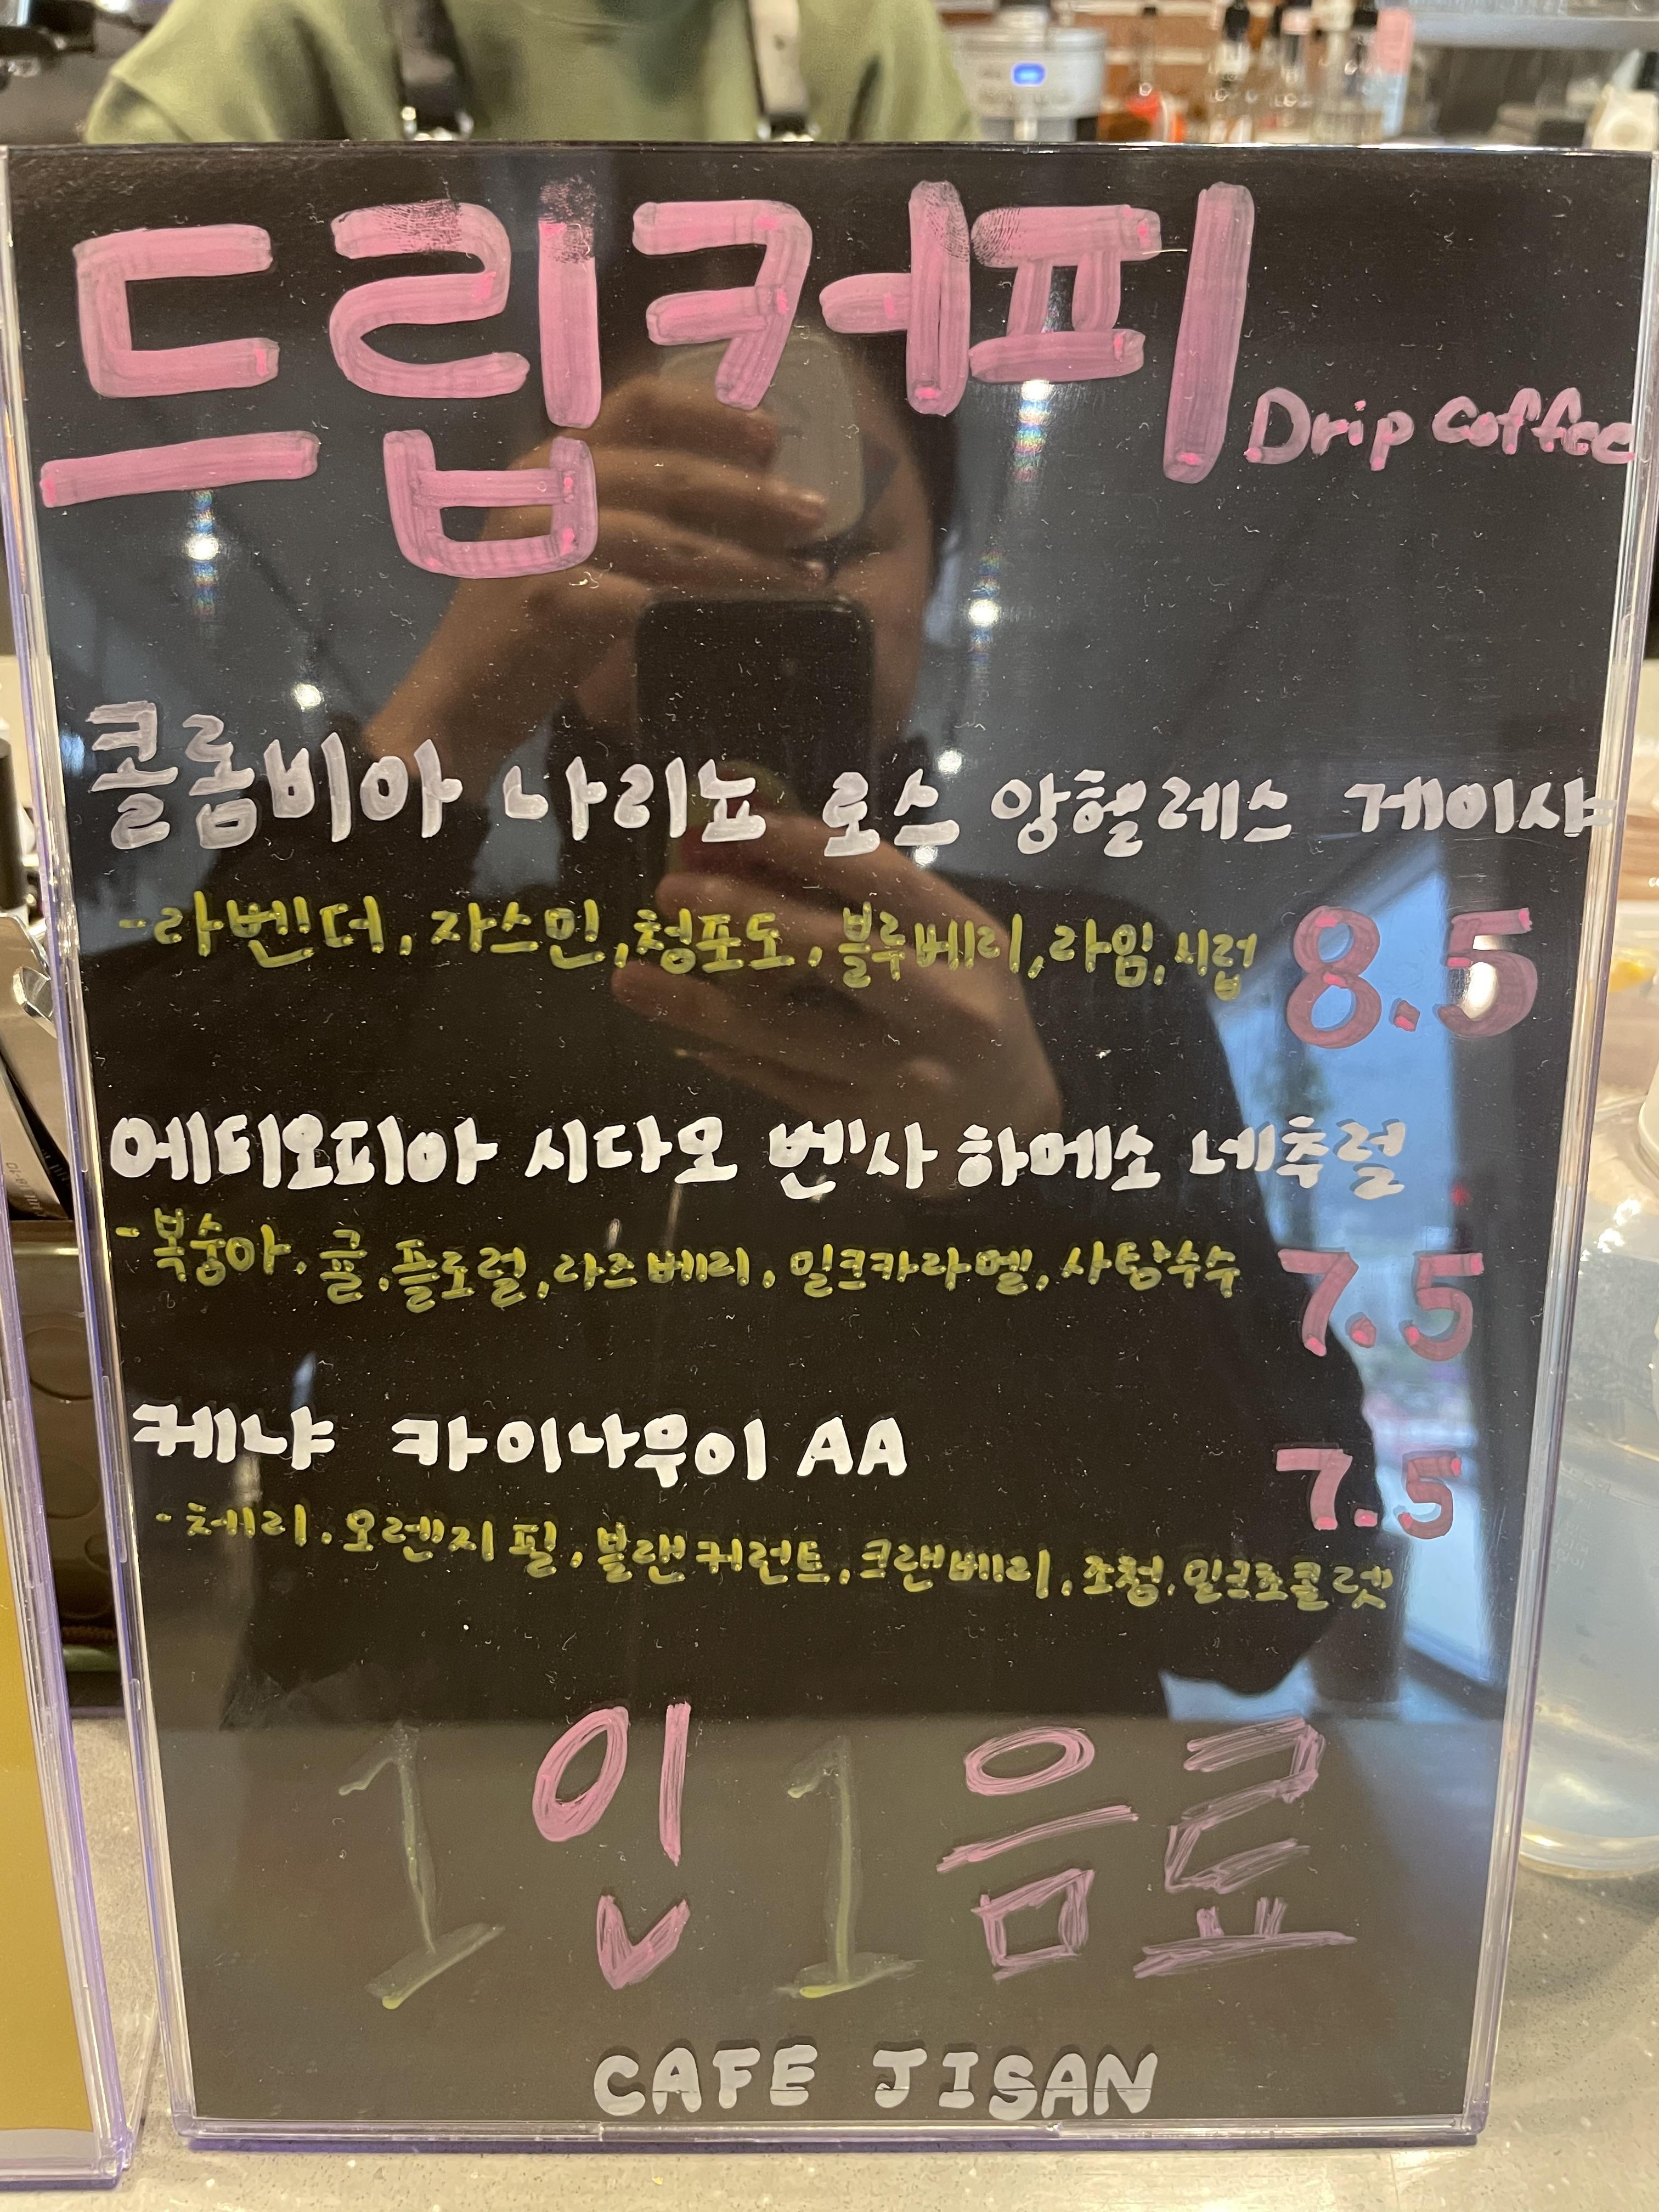 드립커피 Drip coffee
콜롬비아 나리뇨 로스 앙헬레스 게이샤
-라벤더, 자스민, 청포도, 블루베리, 라임, 시럽 8.5
에티오피아 시다모 벤사 하메소 네추럴
-복숭아, 귤, 플로럴, 라즈베리, 밀크카라멜, 사탕수수 7.5
케냐 카이나무이 AA 7.5
-체리, 오렌지 필, 블랜커런트, 크랜베리, 조청, 밀크초콜렛
1입 1음료
CAFE JISAN